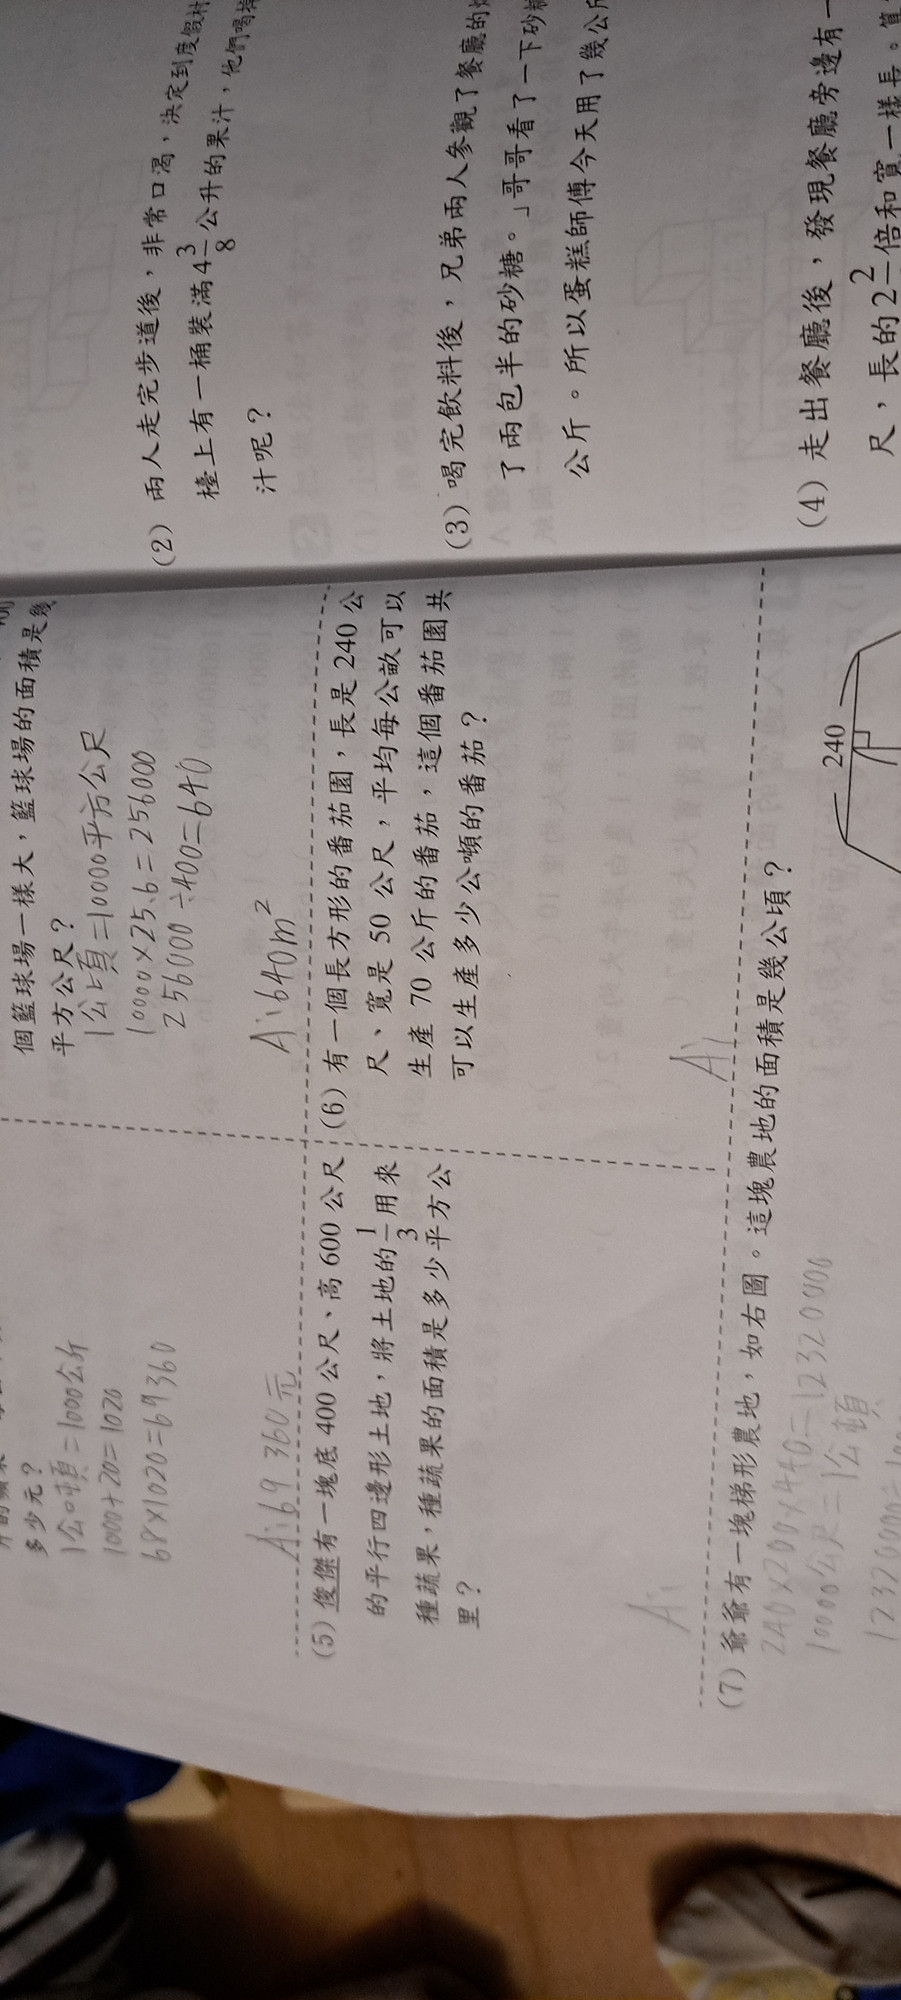 個籃球場一樣大，籃球場的面積是幾
平方公尺？
1公頃=10000平方公尺
10000×25.6=256000
256000÷400=640
A:640m²
多少元？
1公噸=1000公斤
1000+20=1020
68×1020=69360
A:69360元
(5) 俊傑有一塊底 400 公尺、高 600 公尺
的平行四邊形土地，將土地的1/3用來
種蔬果，種蔬果的面積是多少平方公
里？
A:
(6) 有一個長方形的番茄園，長是 240 公
尺、寬是 50 公尺，平均每公畝可以
生產 70 公斤的番茄，這個番茄園共
可以生產多少公噸的番茄？
A:
(7) 爺爺有一塊梯形農地，如右圖。這塊農地的面積是幾公頃？
240×200×440=12320000
10000公尺=1公頃
240
(2) 兩人走完步道後，非常口渴，決定到度假村
檯上有一桶裝滿4 3/8公升的果汁，他們喝掉
汁呢？
(3) 喝完飲料後，兄弟兩人參觀了餐廳的
了兩包半的砂糖。」哥哥看了一下砂糖
公斤。所以蛋糕師傅今天用了幾公斤
(4) 走出餐廳後，發現餐廳旁邊有一
尺，長的2 2/倍和寬一樣長。